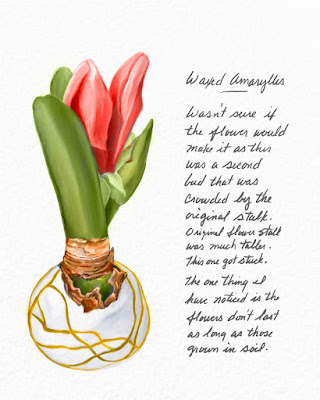 Waxed Amaryllis
Wasn't sure if
the flower would
make it as this
was a second
bud that was
crowded by the
original stalk.
Original flower stalk
was much taller.
This one got stuck.
The one thing I
have noticed is the
flowers don't last
as long as those
grown in soil.